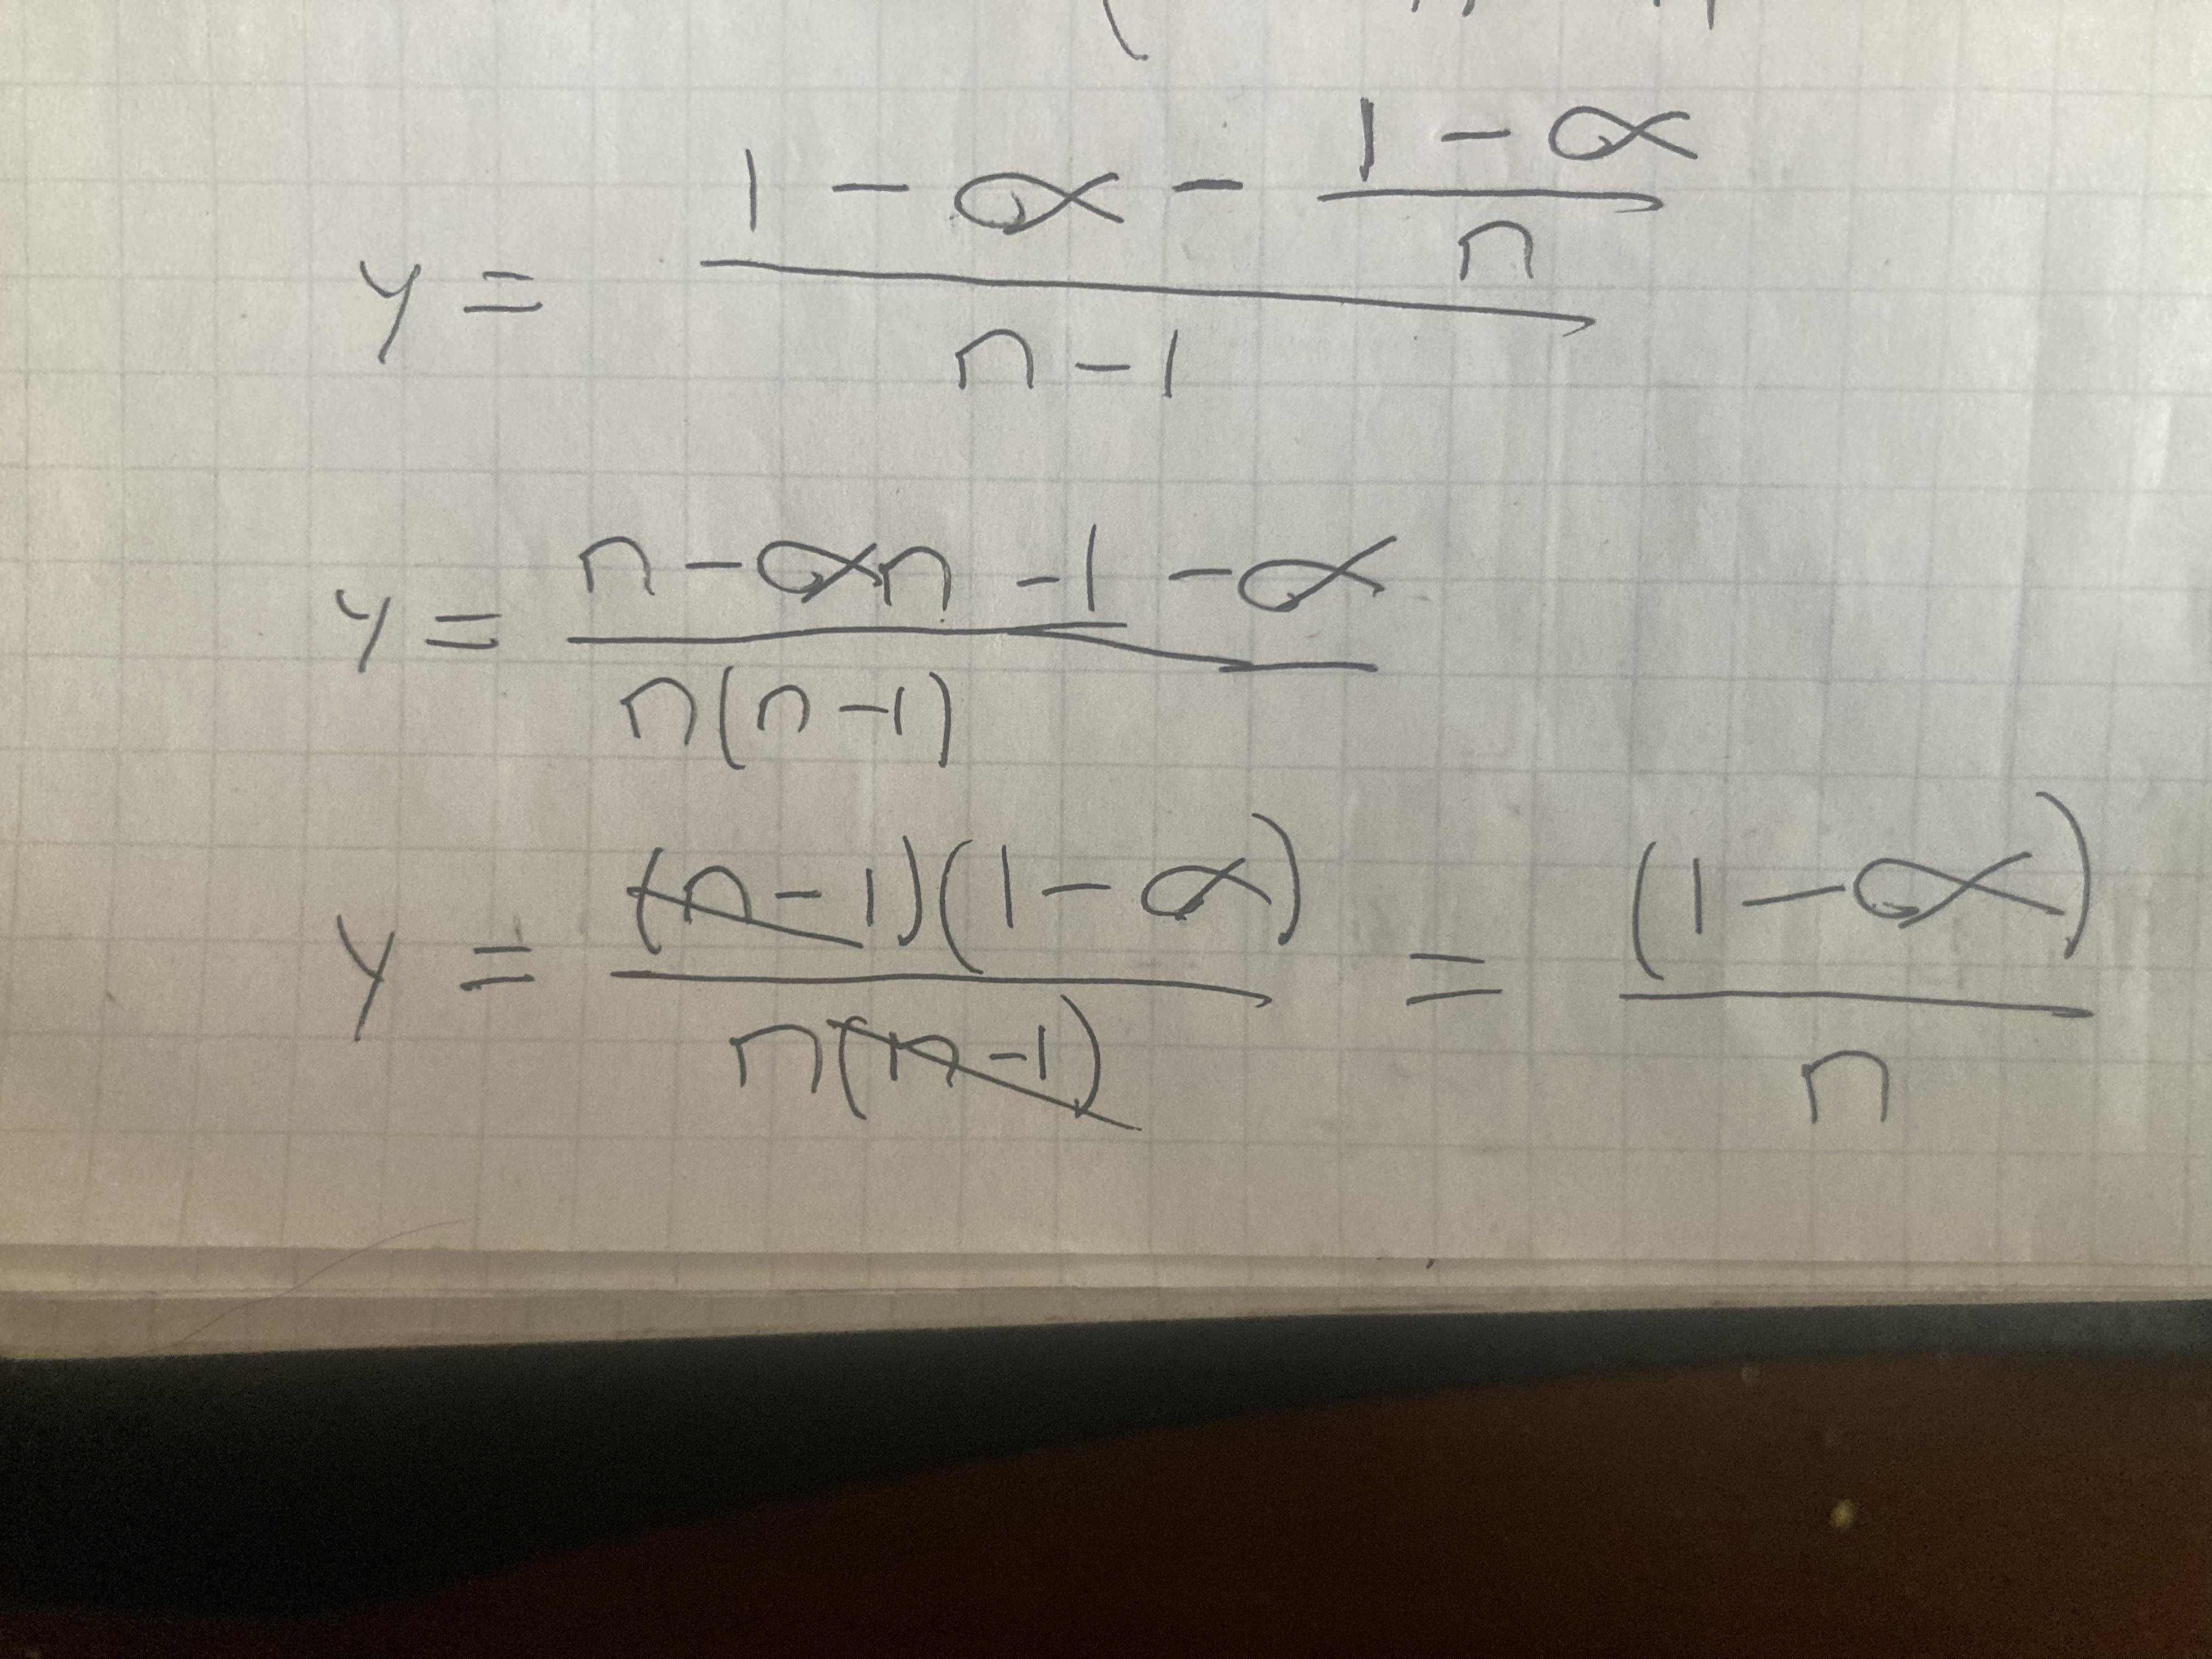 y = (1 - α - (1 - α)/n)/(n - 1)
y = (n - αn - 1 - α)/(n(n - 1))
y = ((n - 1)(1 - α))/(n(n - 1)) = (1 - α)/n